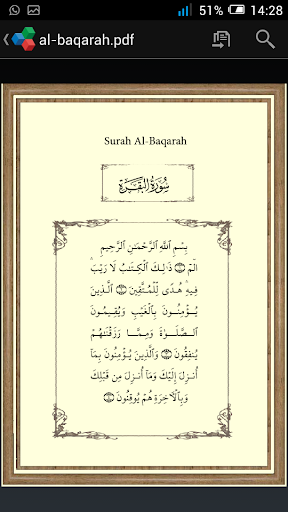 51% 14:28
al-baqarah.pdf
Surah Al-Baqarah
سُورَةُ البَقَرَةِ
بِسْمِ ٱللَّهِ ٱلرَّحْمَٰنِ ٱلرَّحِيمِ
الٓمٓ ۝ ذَٰلِكَ ٱلْكِتَٰبُ لَا رَيْبَۛ
فِيهِۛ هُدًى لِّلْمُتَّقِينَ ۝ ٱلَّذِينَ
يُؤْمِنُونَ بِٱلْغَيْبِ وَيُقِيمُونَ
ٱلصَّلَوٰةَ وَمِمَّا رَزَقْنَٰهُمْ
يُنفِقُونَ ۝ وَٱلَّذِينَ يُؤْمِنُونَ بِمَآ
أُنزِلَ إِلَيْكَ وَمَآ أُنزِلَ مِن قَبْلِكَ
وَبِٱلْءَاخِرَةِ هُمْ يُوقِنُونَ ۝